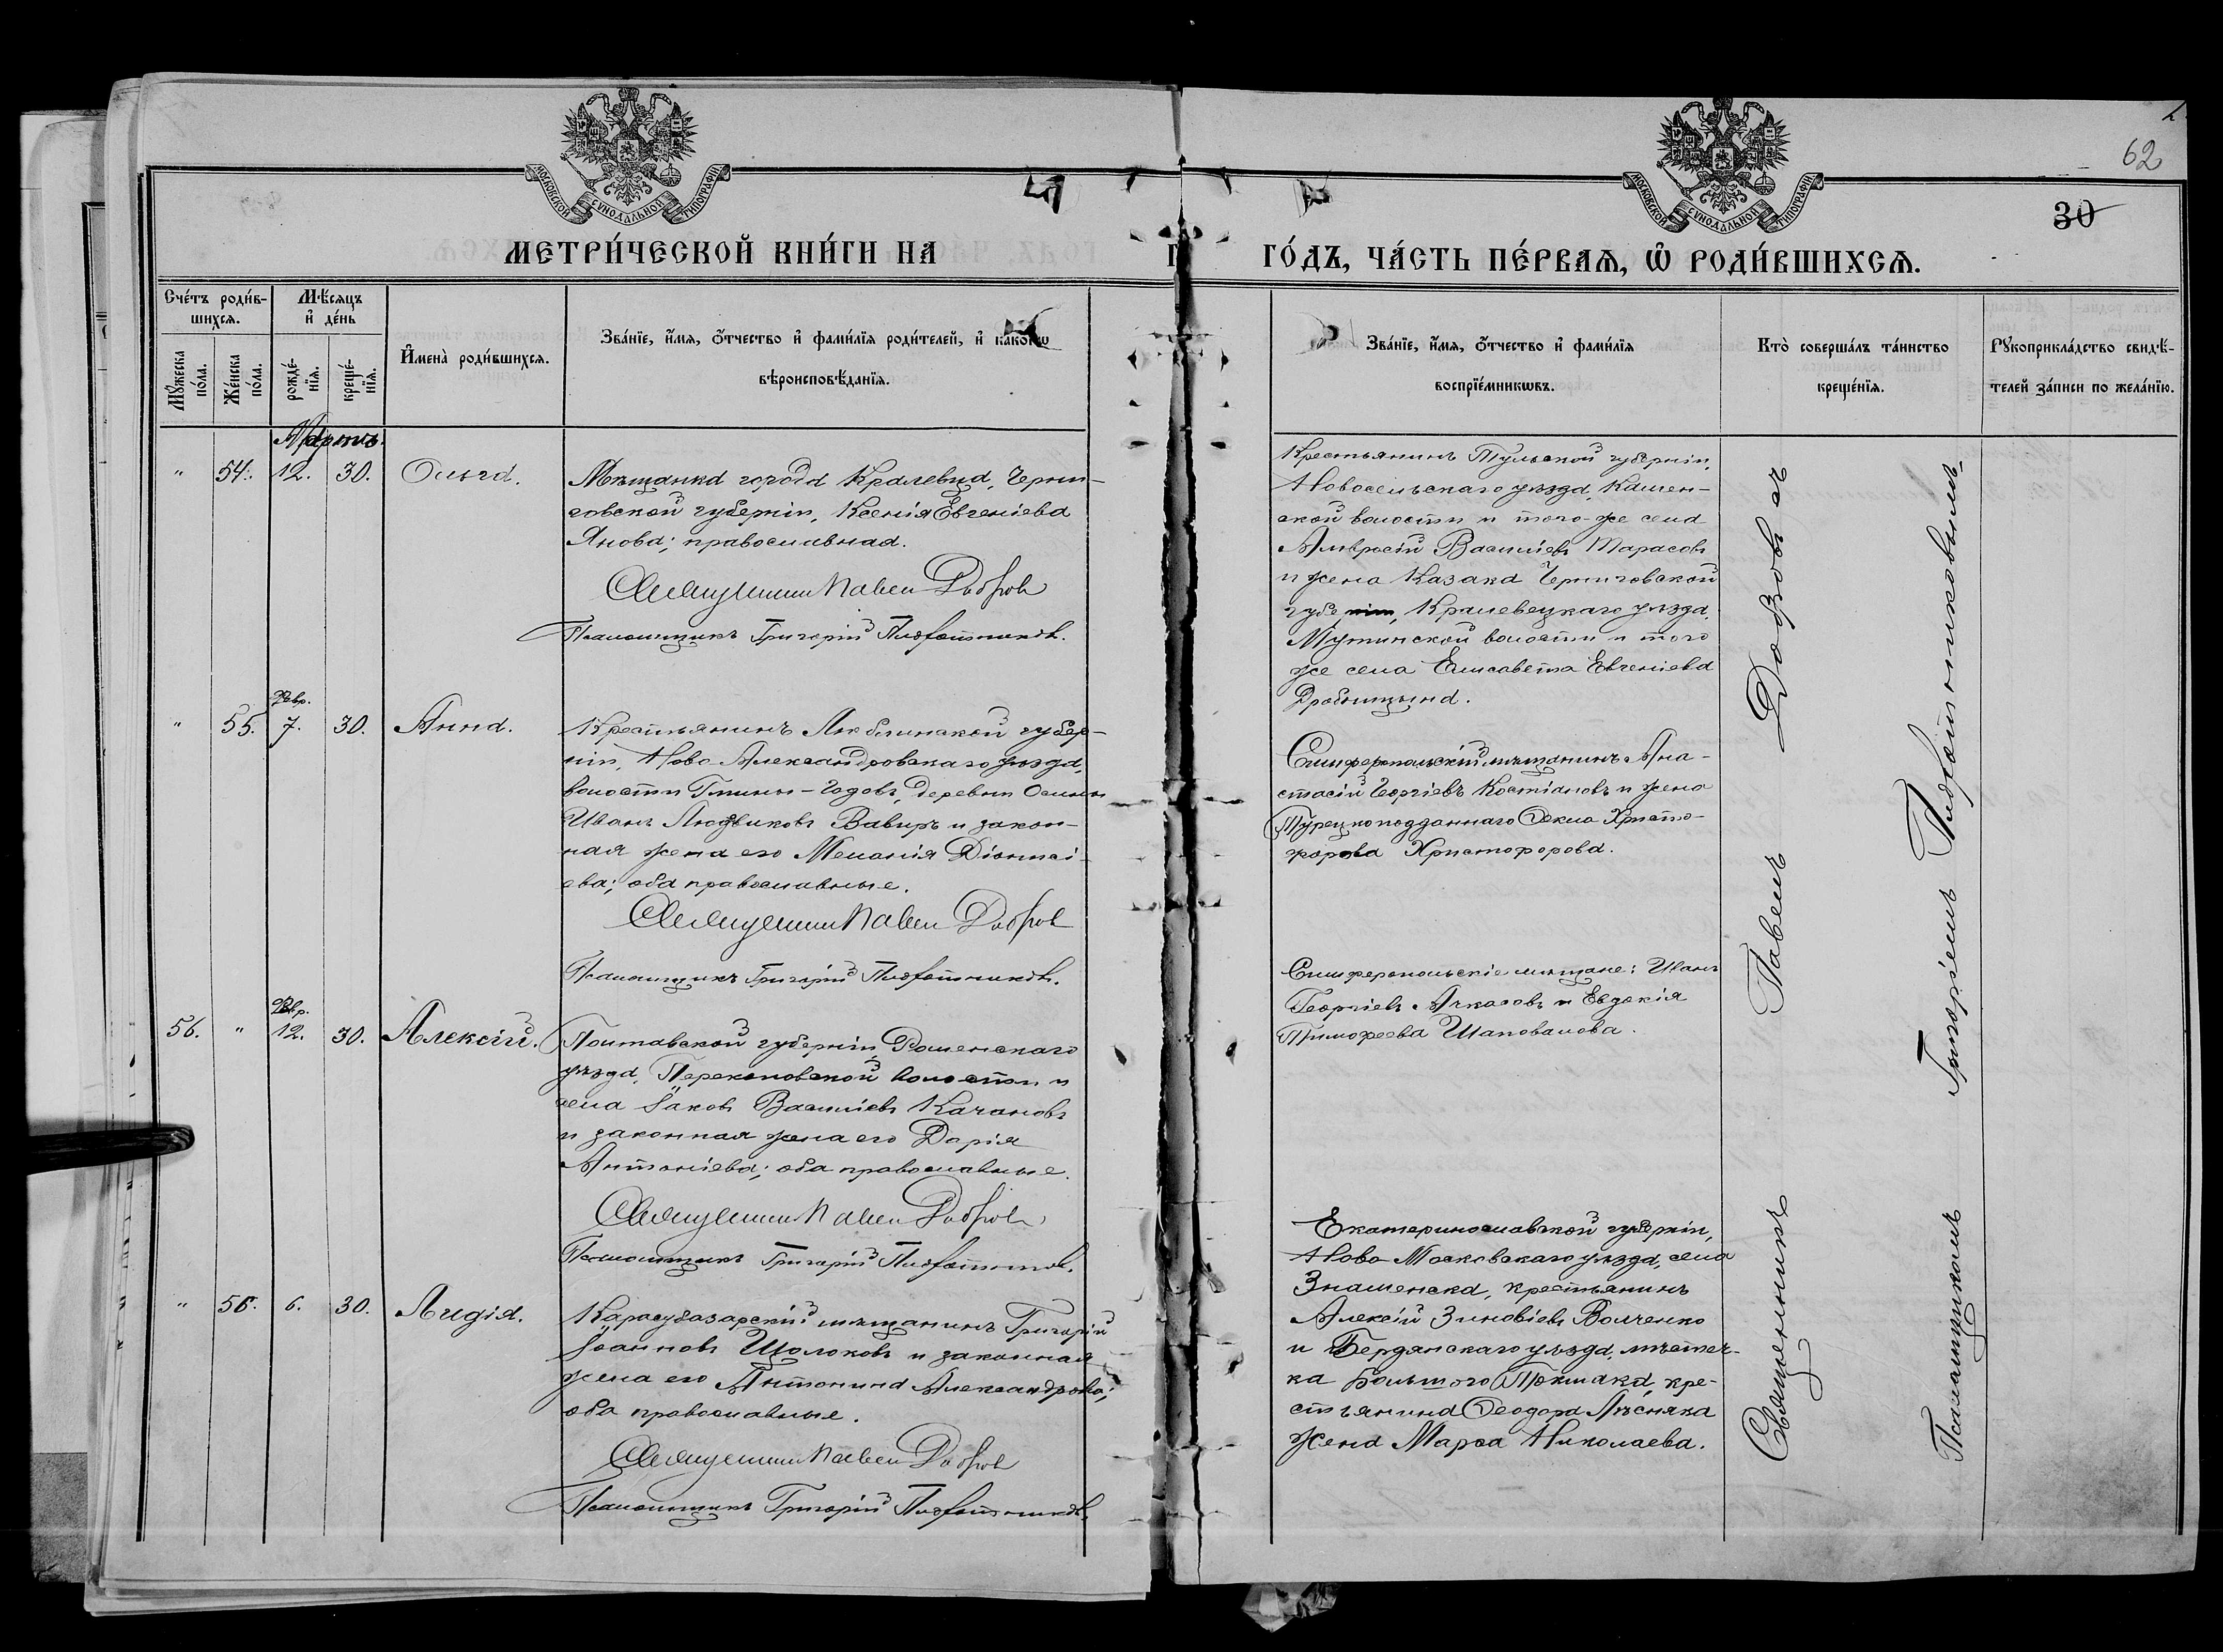 62
30
МОСКОВСКОЙ СѴНОДАЛЬНОЙ ТИПОГРАФІИ
МОСКОВСКОЙ СѴНОДАЛЬНОЙ ТИПОГРАФІИ
МЕТРИ́ЧЕСКОЙ КНИ́ГИ НА
ГО́ДЪ, ЧА́СТЬ ПЕ́РВАѦ, Ѡ҆ РОДИ́ВШИХСѦ.
Сче́тъ роди́в-
шихсѧ.
Мꙋ́жеска по́ла.
Же́нска по́ла.
Мѣ́сѧцъ
и҆ де́нь
рожде́-
нїѧ.
креще́-
нїѧ.
И҆мена̀ роди́вшихсѧ.
Зва́нїе, и҆́мѧ, ѻ҆́тчество и҆ фами́лїѧ роди́телей, и҆ како́гѡ
вѣроисповѣ́данїѧ.
Зва́нїе, и҆́мѧ, ѻ҆́тчество и҆ фами́лїѧ
воспрїе́мникѡвъ.
Кто̀ соверша́лъ та́инство
креще́нїѧ.
Рꙋкоприкла́дство свидѣ́-
телей за́писи по жела́нїю.
Мартъ.
" 54. 12. 30. Ольга.
Мѣщанка города Кралевца, Черни-
говской губерніи, Ксенія Евгеніева
Янова; православная.
Священникъ Павелъ Добровъ
Псаломщикъ Григорій
Крестьянинъ Тульской губерніи,
Новосельскаго уѣзда, Камен-
ской волости и того-же села
Амвросій Василіевъ Тарасовъ
и жена Казака Черниговской
губерніи, Кралевецкаго уѣзда,
Мутинской волости и того
же села Елисавета Евгеніева
Февр.
" 55. 7. 30. Анна.
Крестьянинъ Люблинской губер-
ніи, Ново-Александровскаго уѣзда,
волости Гмины-Годовъ, деревни Осины
Иванъ Людвиковъ Вавиръ и закон-
ная жена его Меланія Діонисі-
ева; оба православные.
Священникъ Павелъ Добровъ
Псаломщикъ Григорій
Симферопольскій мѣщанинъ Ана-
стасій Георгіевъ Костіановъ и жена
Турецкоподданнаго Ѳекла Христо-
форова Христофорова.
Февр.
56. " 12. 30. Алексій.
Полтавской губерніи, Роменскаго
уѣзда, Перекоповской волости и
села Іаковъ Василіевъ Качановъ
и законная жена его Дарія
Антоніева; оба православные.
Священникъ Павелъ Добровъ
Псаломщикъ Григорій
Симферопольскіе мѣщане: Иванъ
Георгіевъ Ачкасовъ и Евдокія
Тимоѳеева Шаповалова.
" 56. 6. 30. Лидія.
Карасубазарскій мѣщанинъ Григорій
Іоанновъ Щолоковъ и законная
жена его Антонина Александрова;
оба православные.
Священникъ Павелъ Добровъ
Псаломщикъ Григорій
Екатеринославской губерніи,
Ново Московскаго уѣзда, села
Знаменска, крестьянинъ
Алексій Зиновіевъ Волченко
и Бердянскаго уѣзда, мѣстеч-
ка Большого Токмака, кре-
стьянина Ѳеодора Лѣсняка
жена Марѳа Николаева.
Священникъ Павелъ Добровъ съ
Псаломщикомъ Григоріемъ